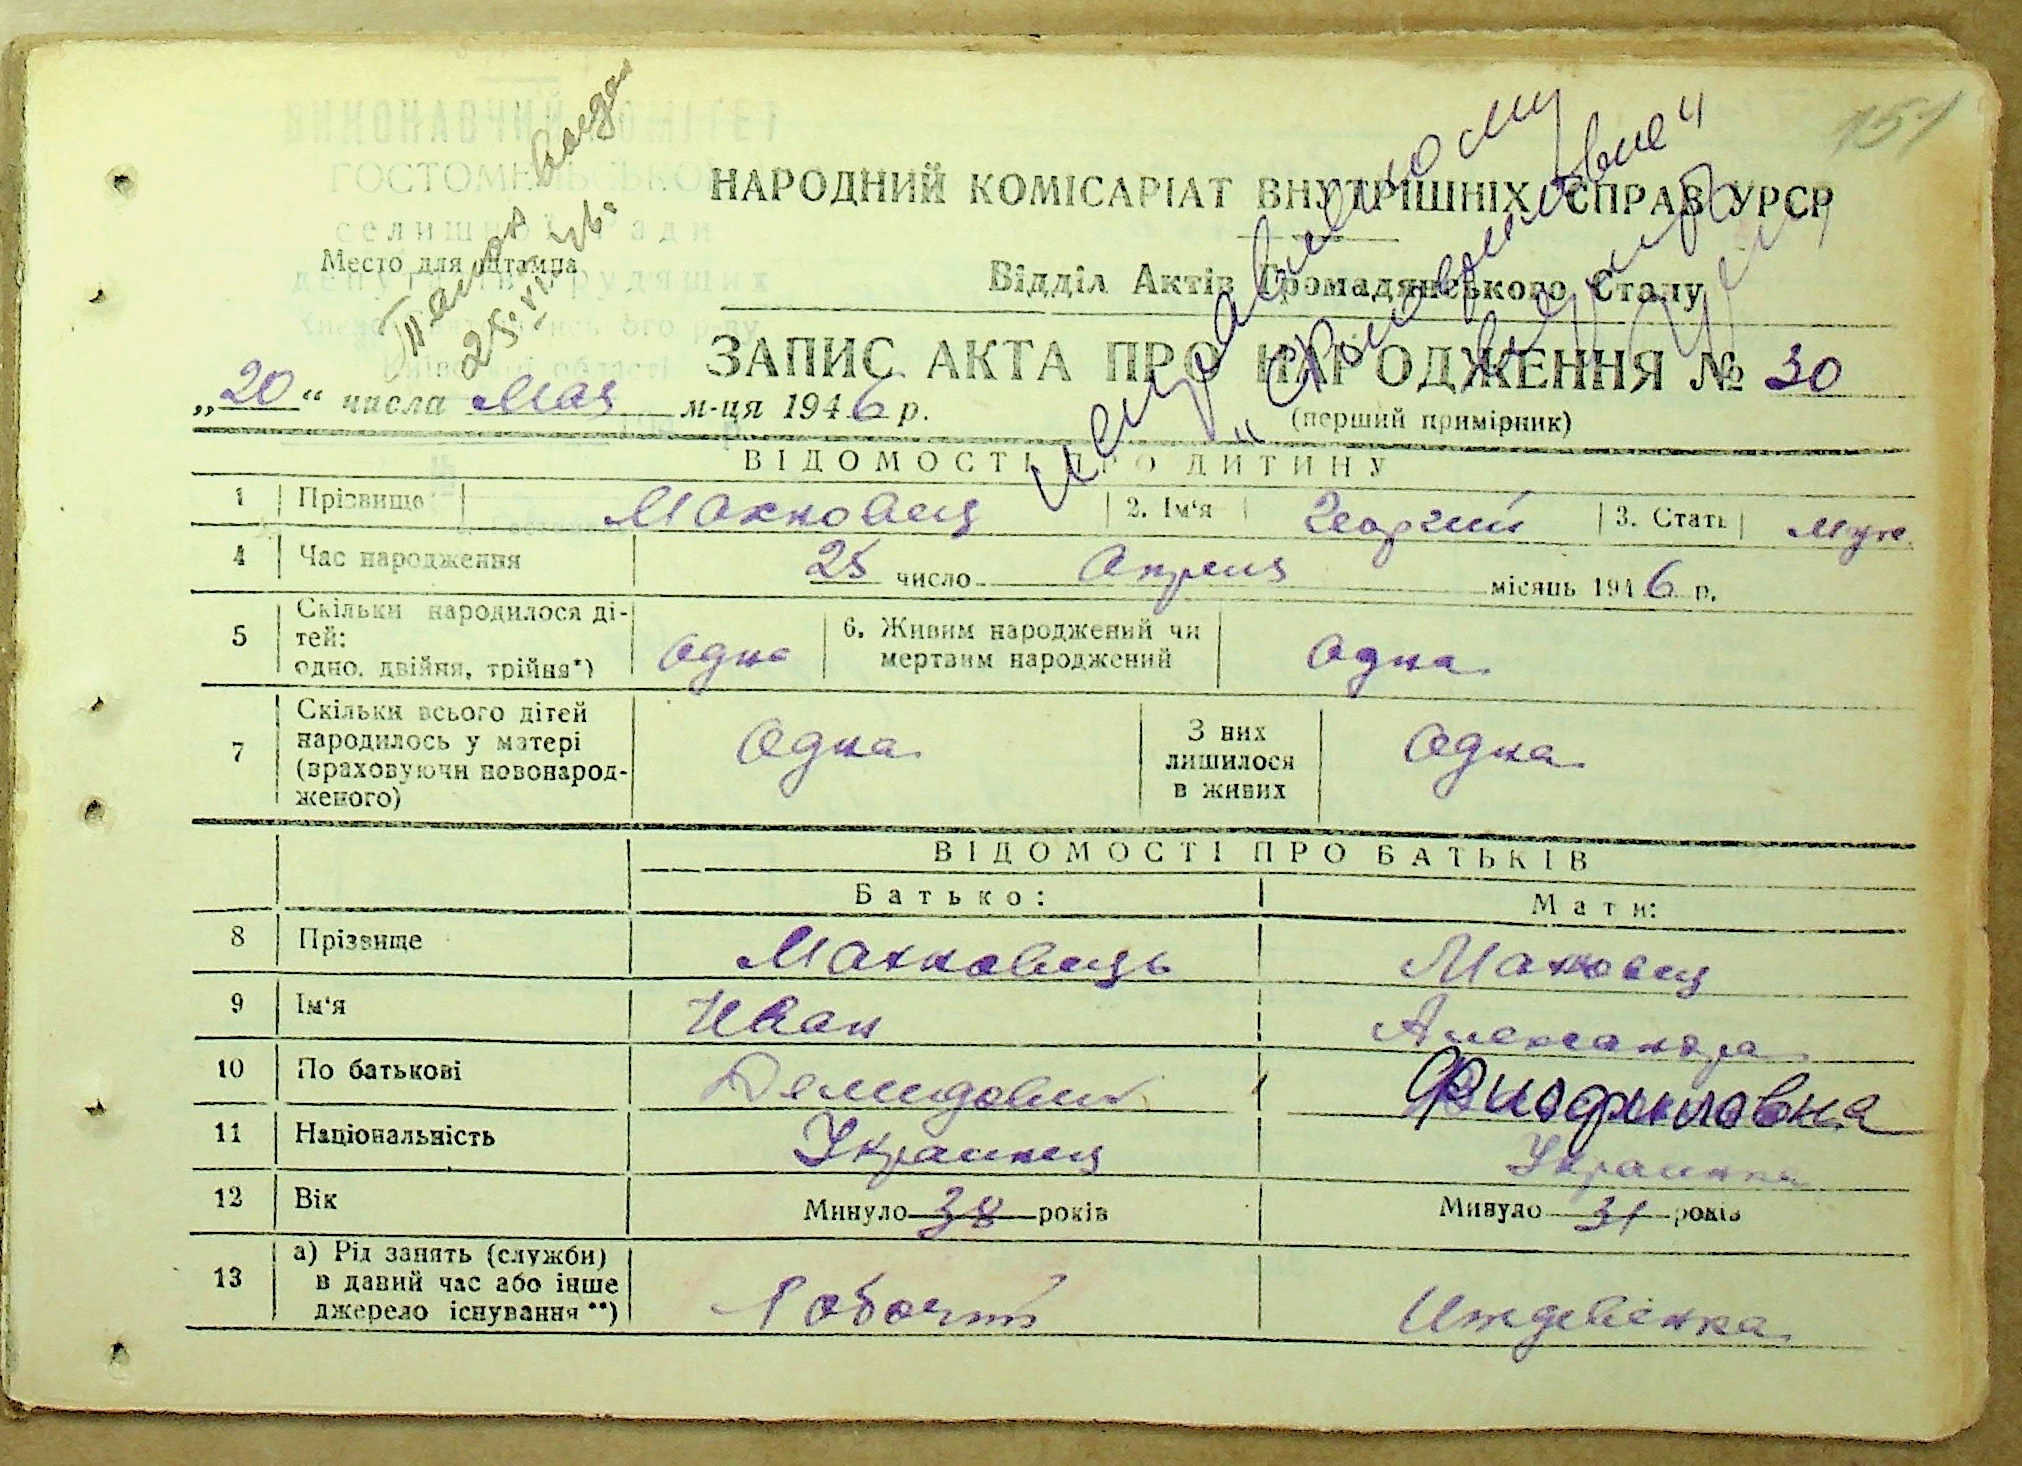 151
ВИКОНАВЧИЙ КОМІТЕТ
ГОСТОМЕЛЬСЬКОЇ
селищної Ради
депутатів трудящих
НАРОДНИЙ КОМІСАРІАТ ВНУТРІШНІХ СПРАВ УРСР
Место для штампа
25.VII
Відділ Актів Громадянського Стану
исправленному
ЗАПИС АКТА ПРО НАРОДЖЕННЯ № 30
„20“ числа Мая м-ця 1946 р.
(перший примірник)
ВІДОМОСТІ ПРО ДИТИНУ
1 Прізвище Махновец 2. Ім'я Георгий 3. Стать муж.
4 Час народження 25 число Апреля місяць 1946 р.
5 Скільки народилося ді-
тей:
одно, двійня, трійня*) Одна 6. Живим народжений чи
мертвим народжений Одна
7 Скільки всього дітей
народилось у матері
(враховуючи новонарод-
женого) Одна З них
лишилося
в живих Одна
ВІДОМОСТІ ПРО БАТЬКІВ
Батько: Мати:
8 Прізвище Махновець Махновец
9 Ім'я Иван Александра
10 По батькові Демидович Фиофиловна
11 Національність Украинец Украинка
12 Вік Минуло 38 років Минуло 31 років
13 а) Рід занять (служби)
в даний час або інше
джерело існування**) Рабочий Иждевенка